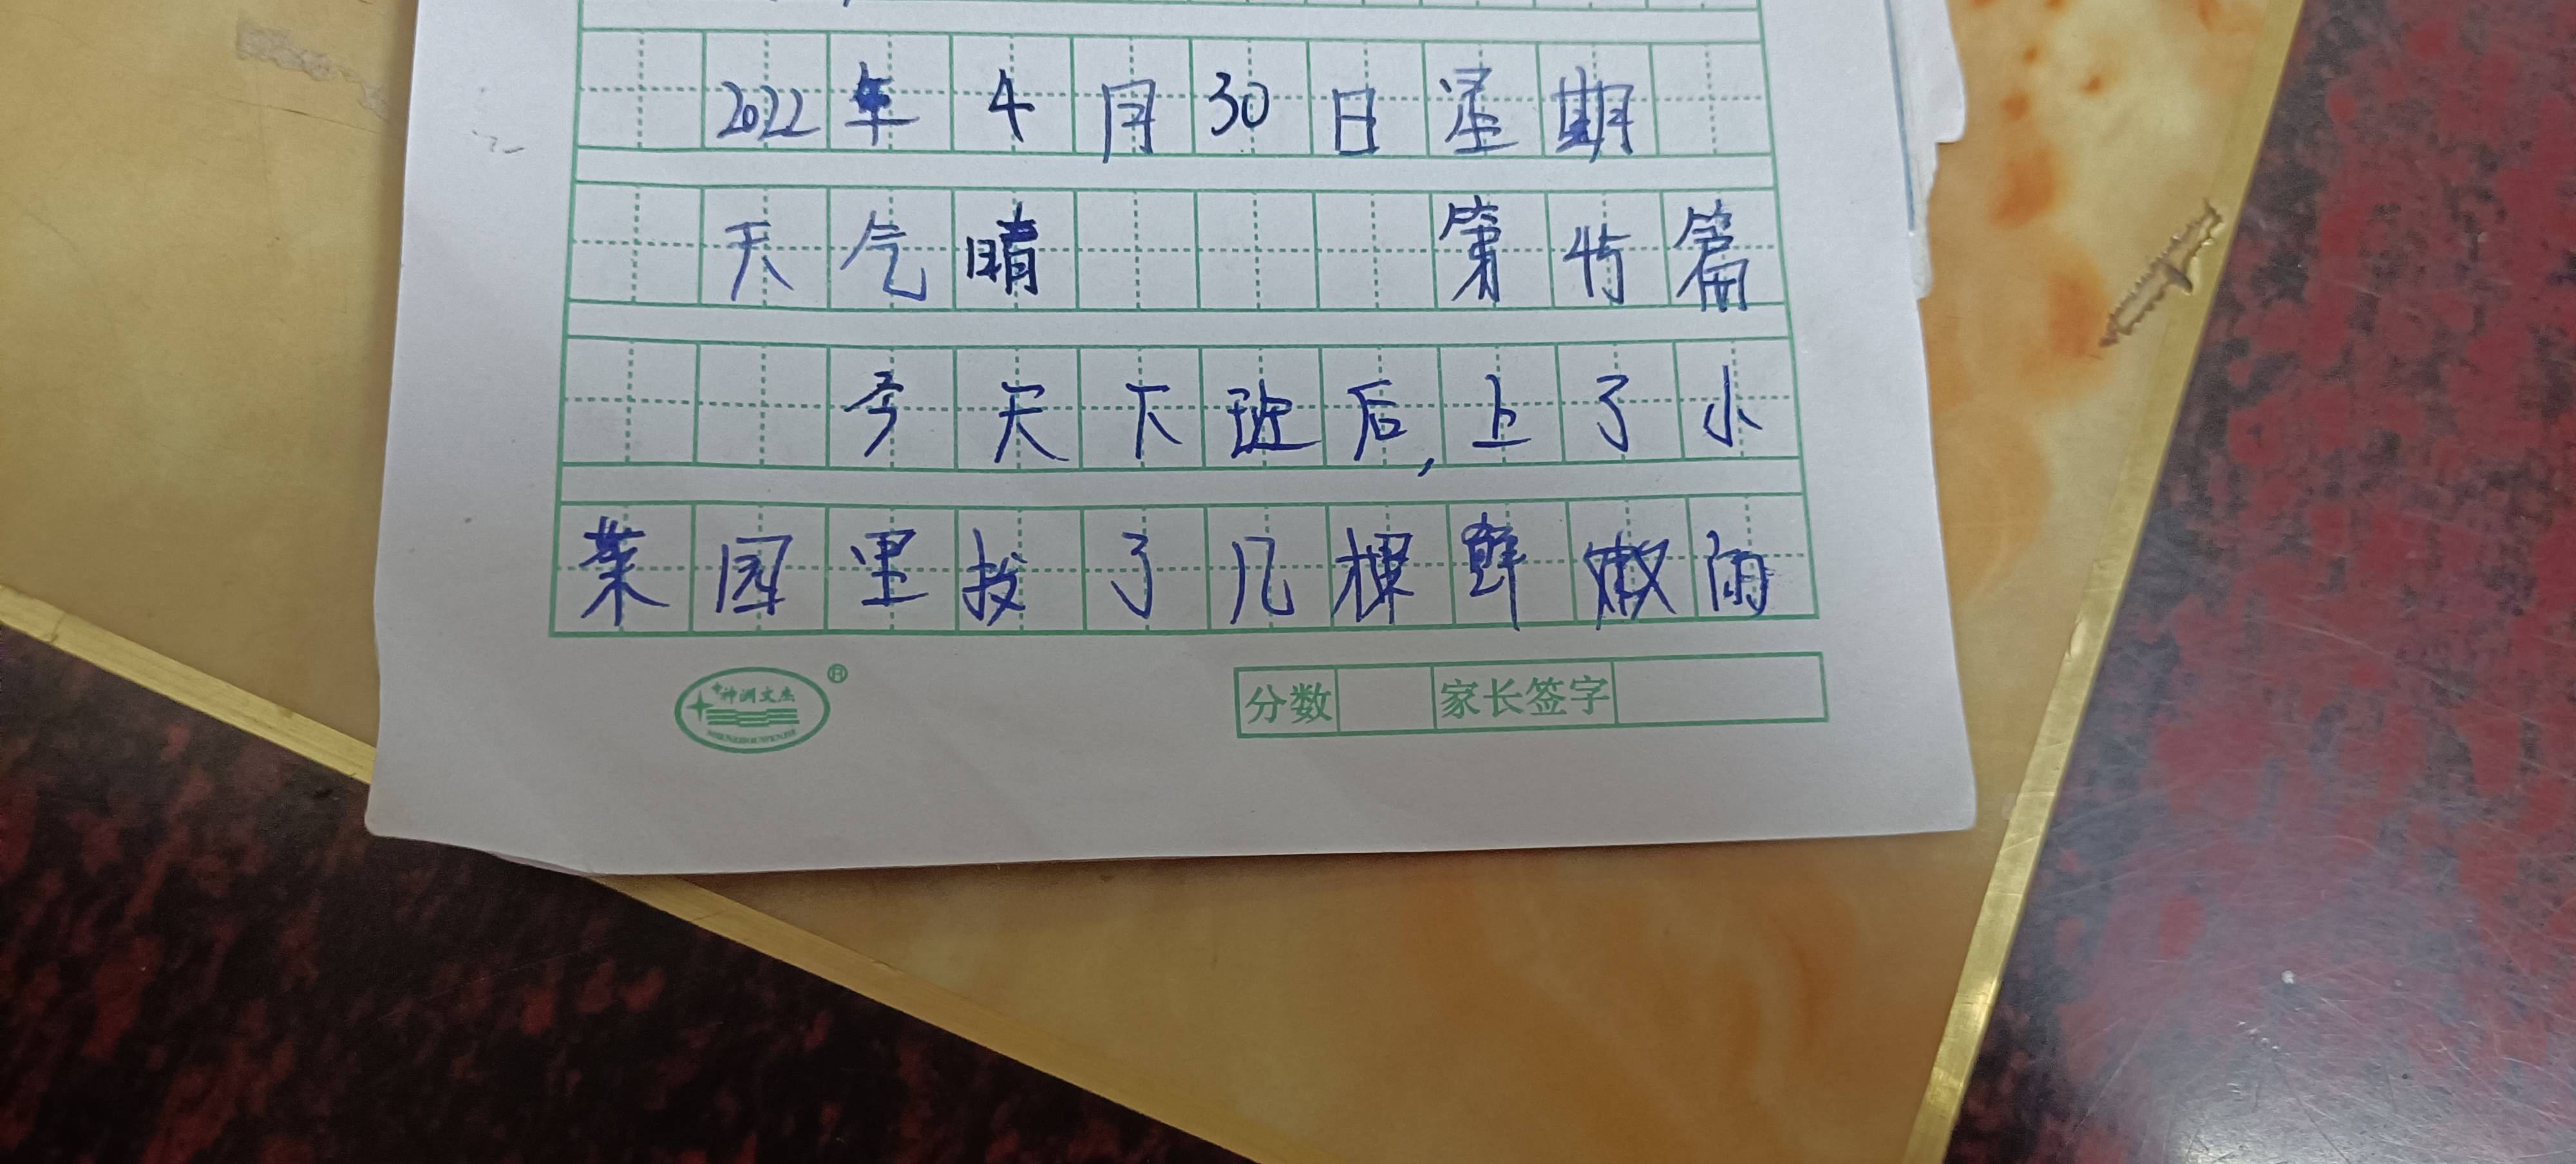 2022年4月30日星期
天气晴 第45篇
今天下班后,上了小
菜园里拔了几棵鲜嫩雨
神洲文杰 ®
SHENZHOUWENJIE
分数 家长签字